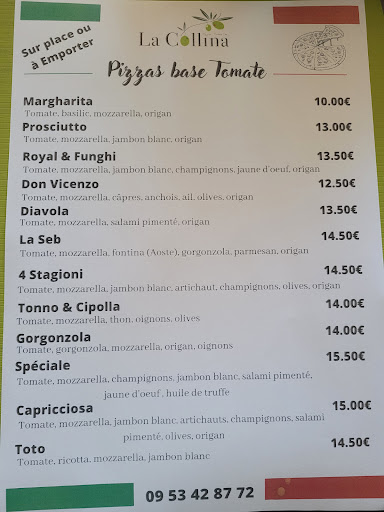 Sur place ou
à Emporter
La Collina
Pizzas base Tomate
Margharita 10.00€
Tomate, basilic, mozzarella, origan
Prosciutto 13.00€
Tomate, mozzarella, jambon blanc, origan
Royal & Funghi 13.50€
Tomate, mozzarella, jambon blanc, champignons, jaune d'oeuf, origan
Don Vicenzo 12.50€
Tomate, mozzarella, câpres, anchois, ail, olives, origan
Diavola 13.50€
Tomate, mozzarella, salami pimenté, origan
La Seb 14.50€
Tomate, mozzarella, fontina (Aoste), gorgonzola, parmesan, origan
4 Stagioni 14.50€
Tomate, mozzarella, jambon blanc, artichaut, champignons, olives, origan
Tonno & Cipolla 14.00€
Tomate, mozzarella, thon, oignons, olives
Gorgonzola 14.00€
Tomate, gorgonzola, mozzarella, origan, oignons
Spéciale 15.50€
Tomate, mozzarella, champignons, jambon blanc, salami pimenté,
jaune d'oeuf, huile de truffe
Capricciosa 15.00€
Tomate, mozzarella, jambon blanc, artichauts, champignons, salami
pimenté, olives, origan
Toto 14.50€
Tomate, ricotta, mozzarella, jambon blanc
09 53 42 87 72